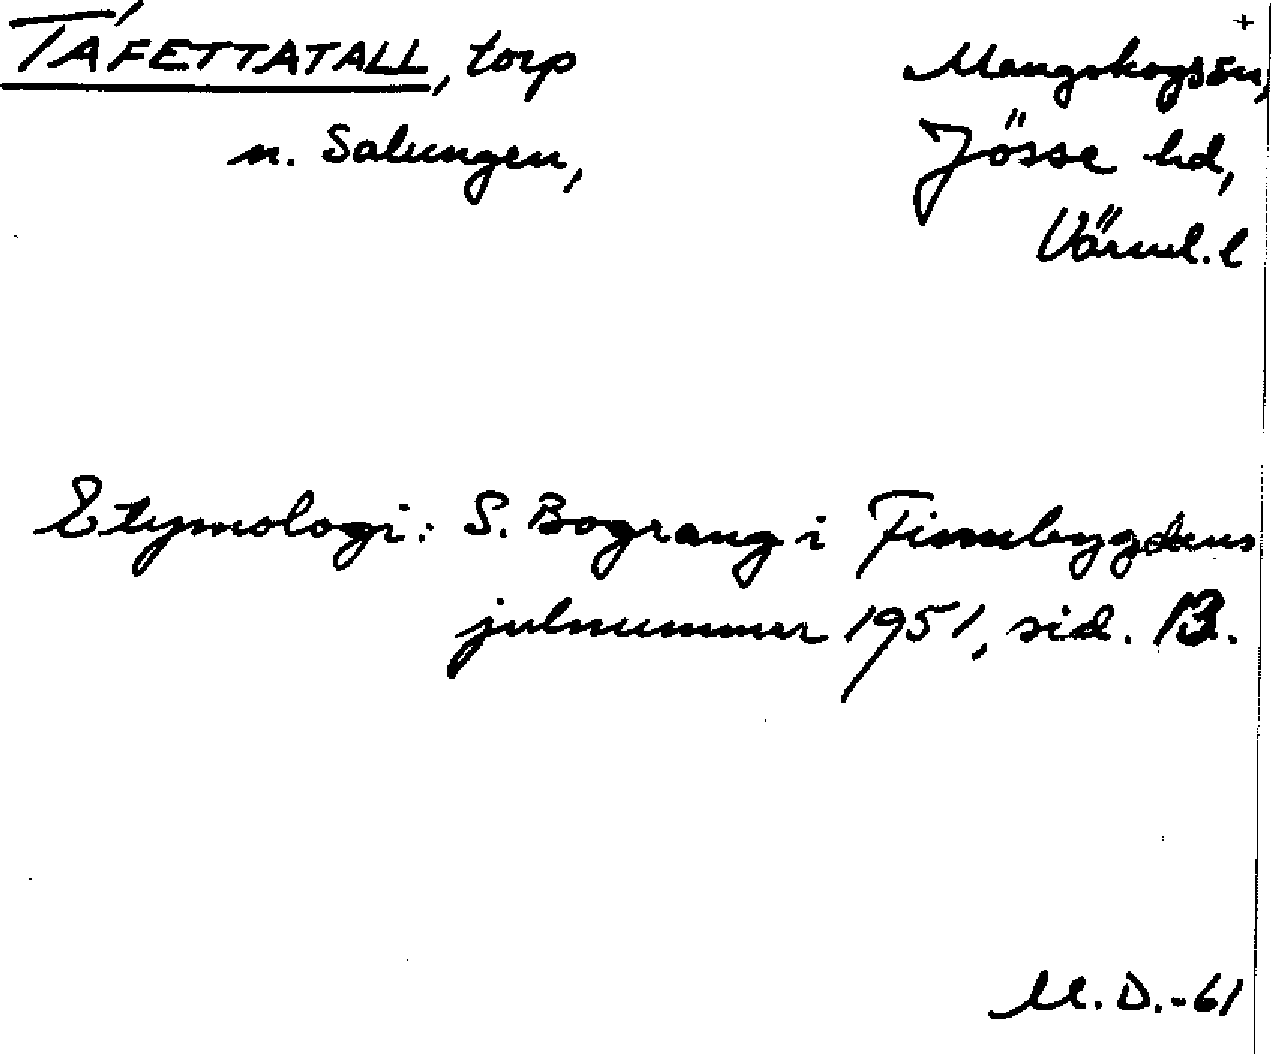 TÁFETTATALL, torp
n. Salungen,
+
Mangskogs sn,
Jösse hd,
Värml. l
Etymologi: S. Bograng i Finnbygdens
julnummer 1951, sid. 13.
M. D. -61